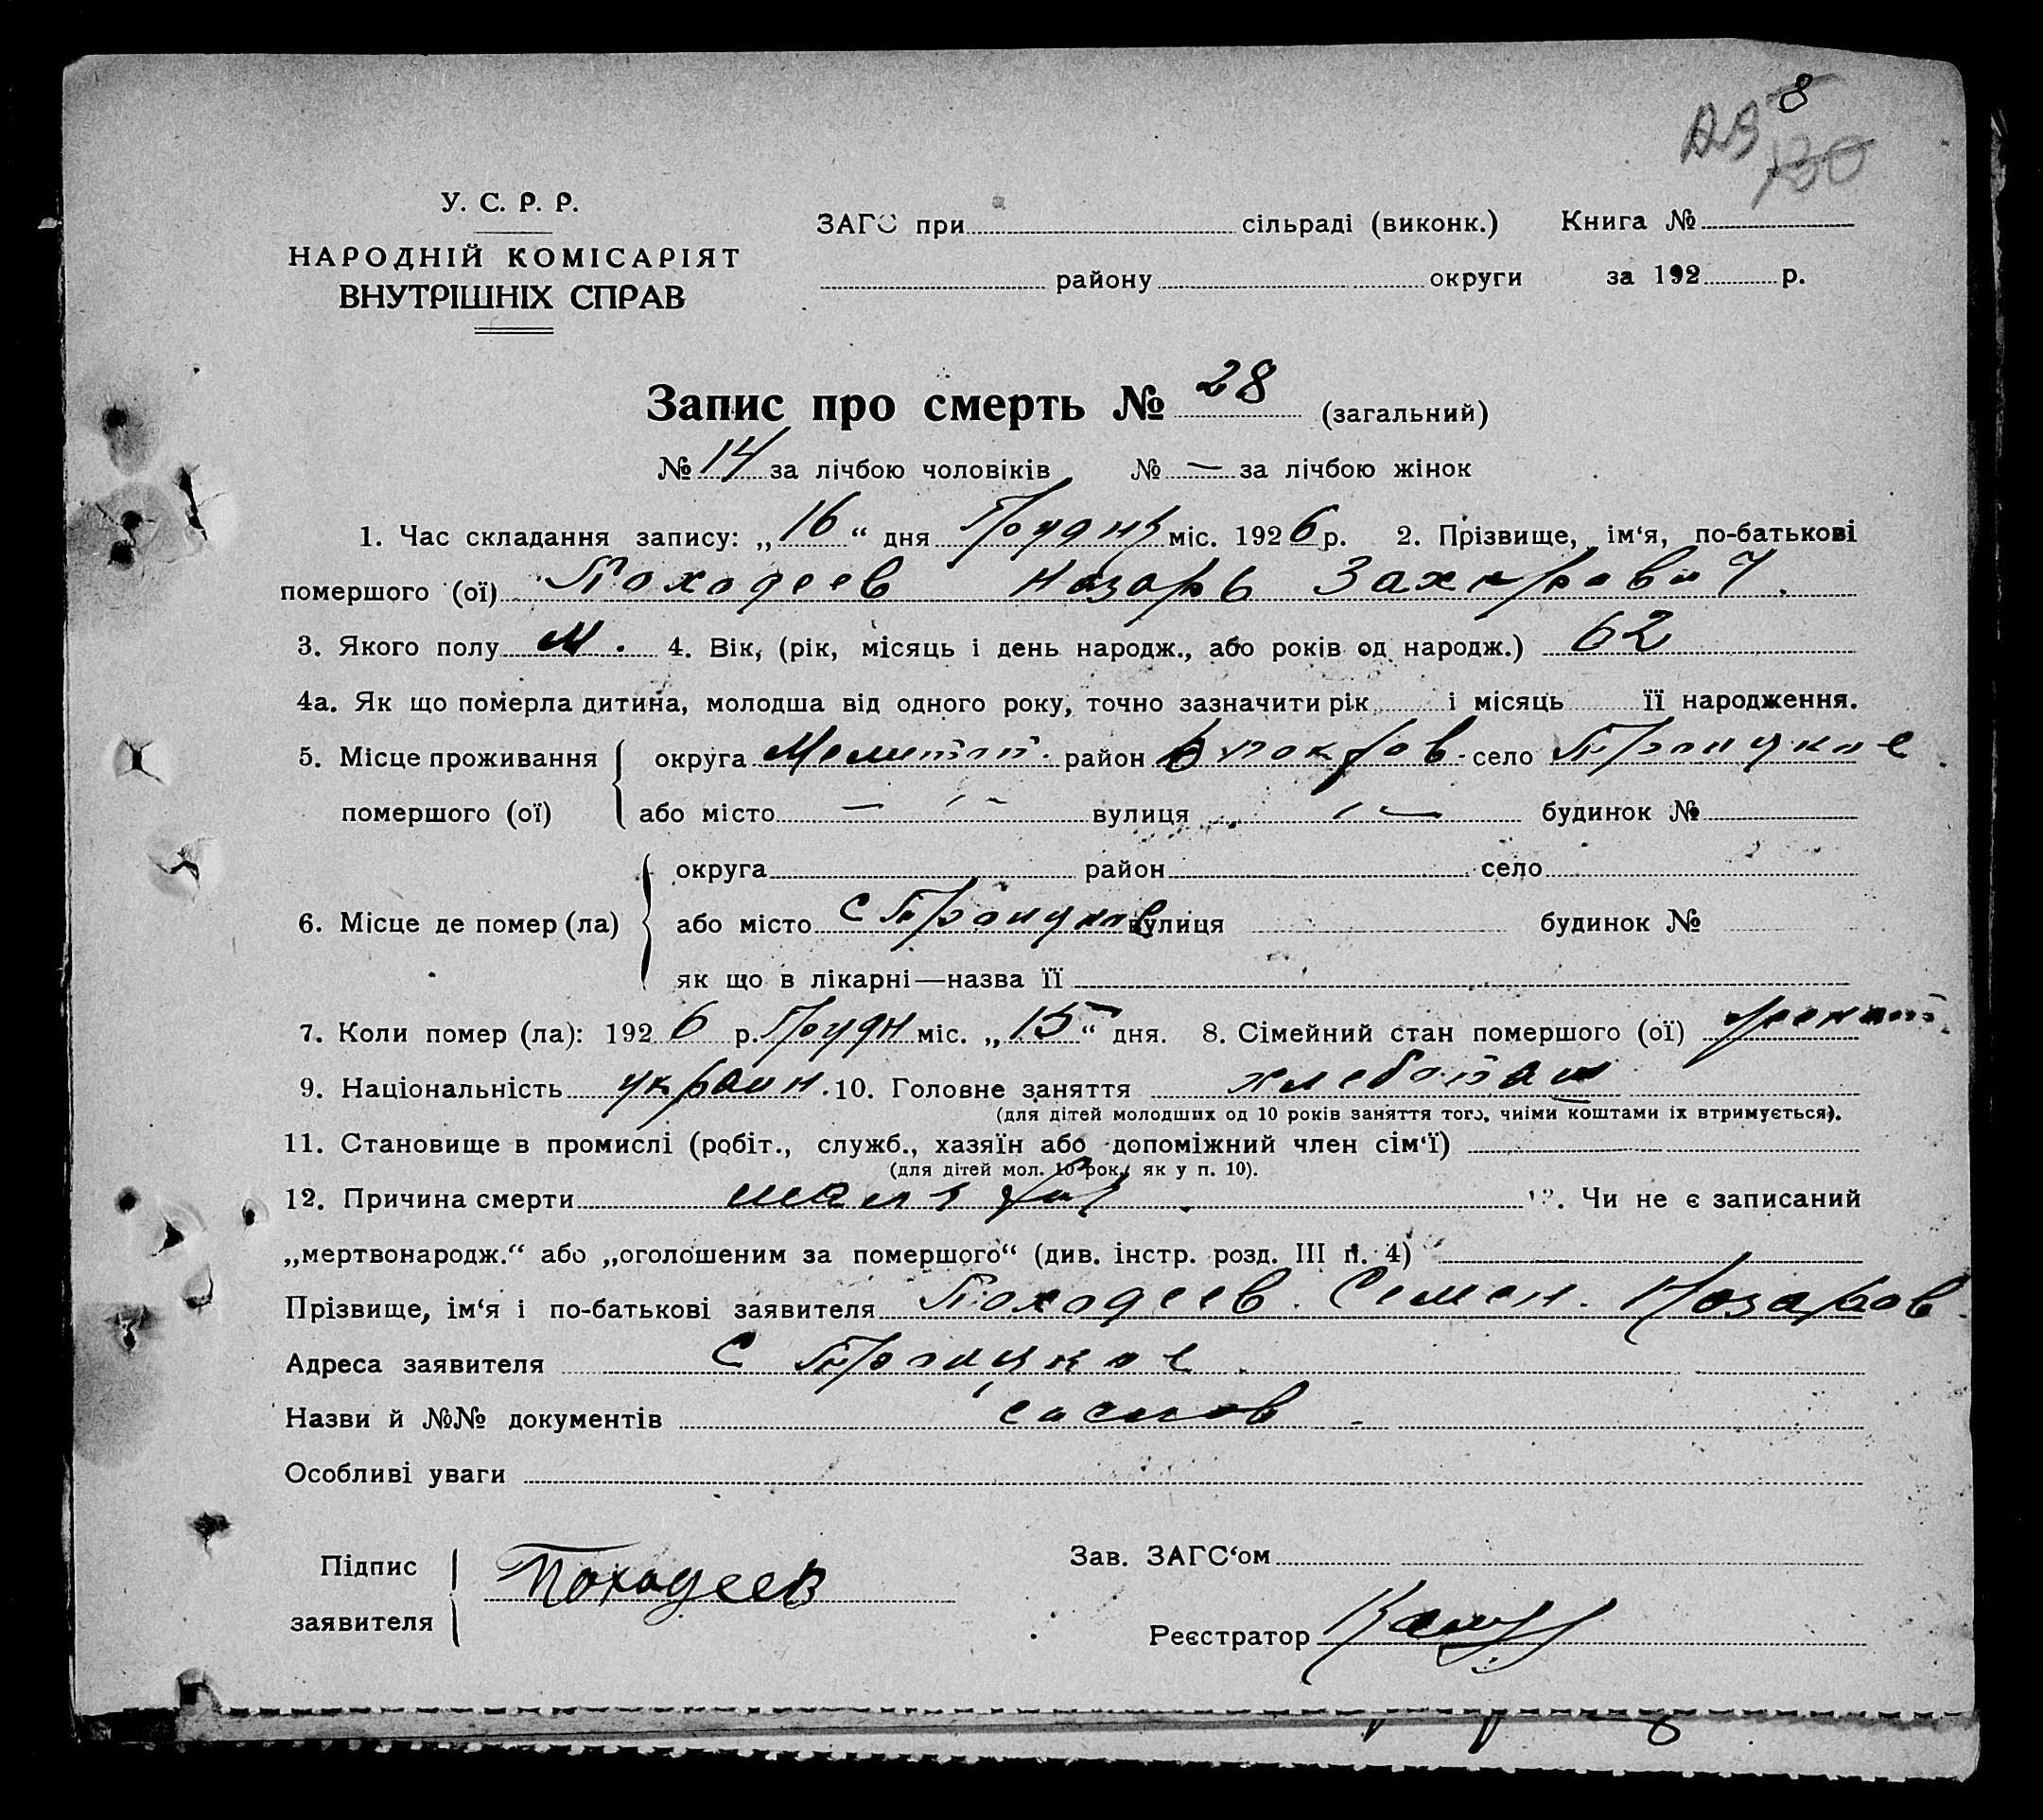 8
АВ 130
У. С. Р. Р.
НАРОДНІЙ КОМІСАРІЯТ
ВНУТРІШНІХ СПРАВ
ЗАГС при сільраді (виконк.) Книга №
району округи за 192 р.
Запис про смерть № 28 (загальний)
№ 14 за лічбою чоловіків № — за лічбою жінок
1. Час складання запису: „16“ дня Грудня міс. 1926 р. 2. Прізвище, ім‘я, по-батькові
помершого (ої) Походеев Назарь Захарович.
3. Якого полу м. 4. Вік, (рік, місяць і день народж., або років од народж.) 62
4а. Як що померла дитина, молодша від одного року, точно зазначити рік і місяць її народження.
5. Місце проживання округа Мелитоп. район село Троицкое
помершого (ої) або місто — вулиця — будинок №
округа район село
6. Місце де помер (ла) або місто с Троицкое вулиця будинок №
як що в лікарні—назва її
7. Коли помер (ла): 1926 р. Грудн міс. „15“ дня. 8. Сімейний стан помершого (ої)
9. Національність украин. 10. Головне заняття хлебопаш
(для дітей молодших од 10 років заняття того, чиїми коштами їх втримується).
11. Становище в промислі (робіт., служб., хазяїн або допоміжний член сім‘ї)
(для дітей мол. 10 рок., як у п. 10).
12. Причина смерти 13. Чи не є записаний
„мертвонародж.“ або „оголошеним за помершого“ (див. інстр. розд. III п. 4)
Прізвище, ім‘я і по-батькові заявителя Походеев. Семен. Назаров
Адреса заявителя С Троицкое.
Назви й №№ документів
Особливі уваги
Підпис заявителя Походеев
Зав. ЗАГС‘ом
Реєстратор